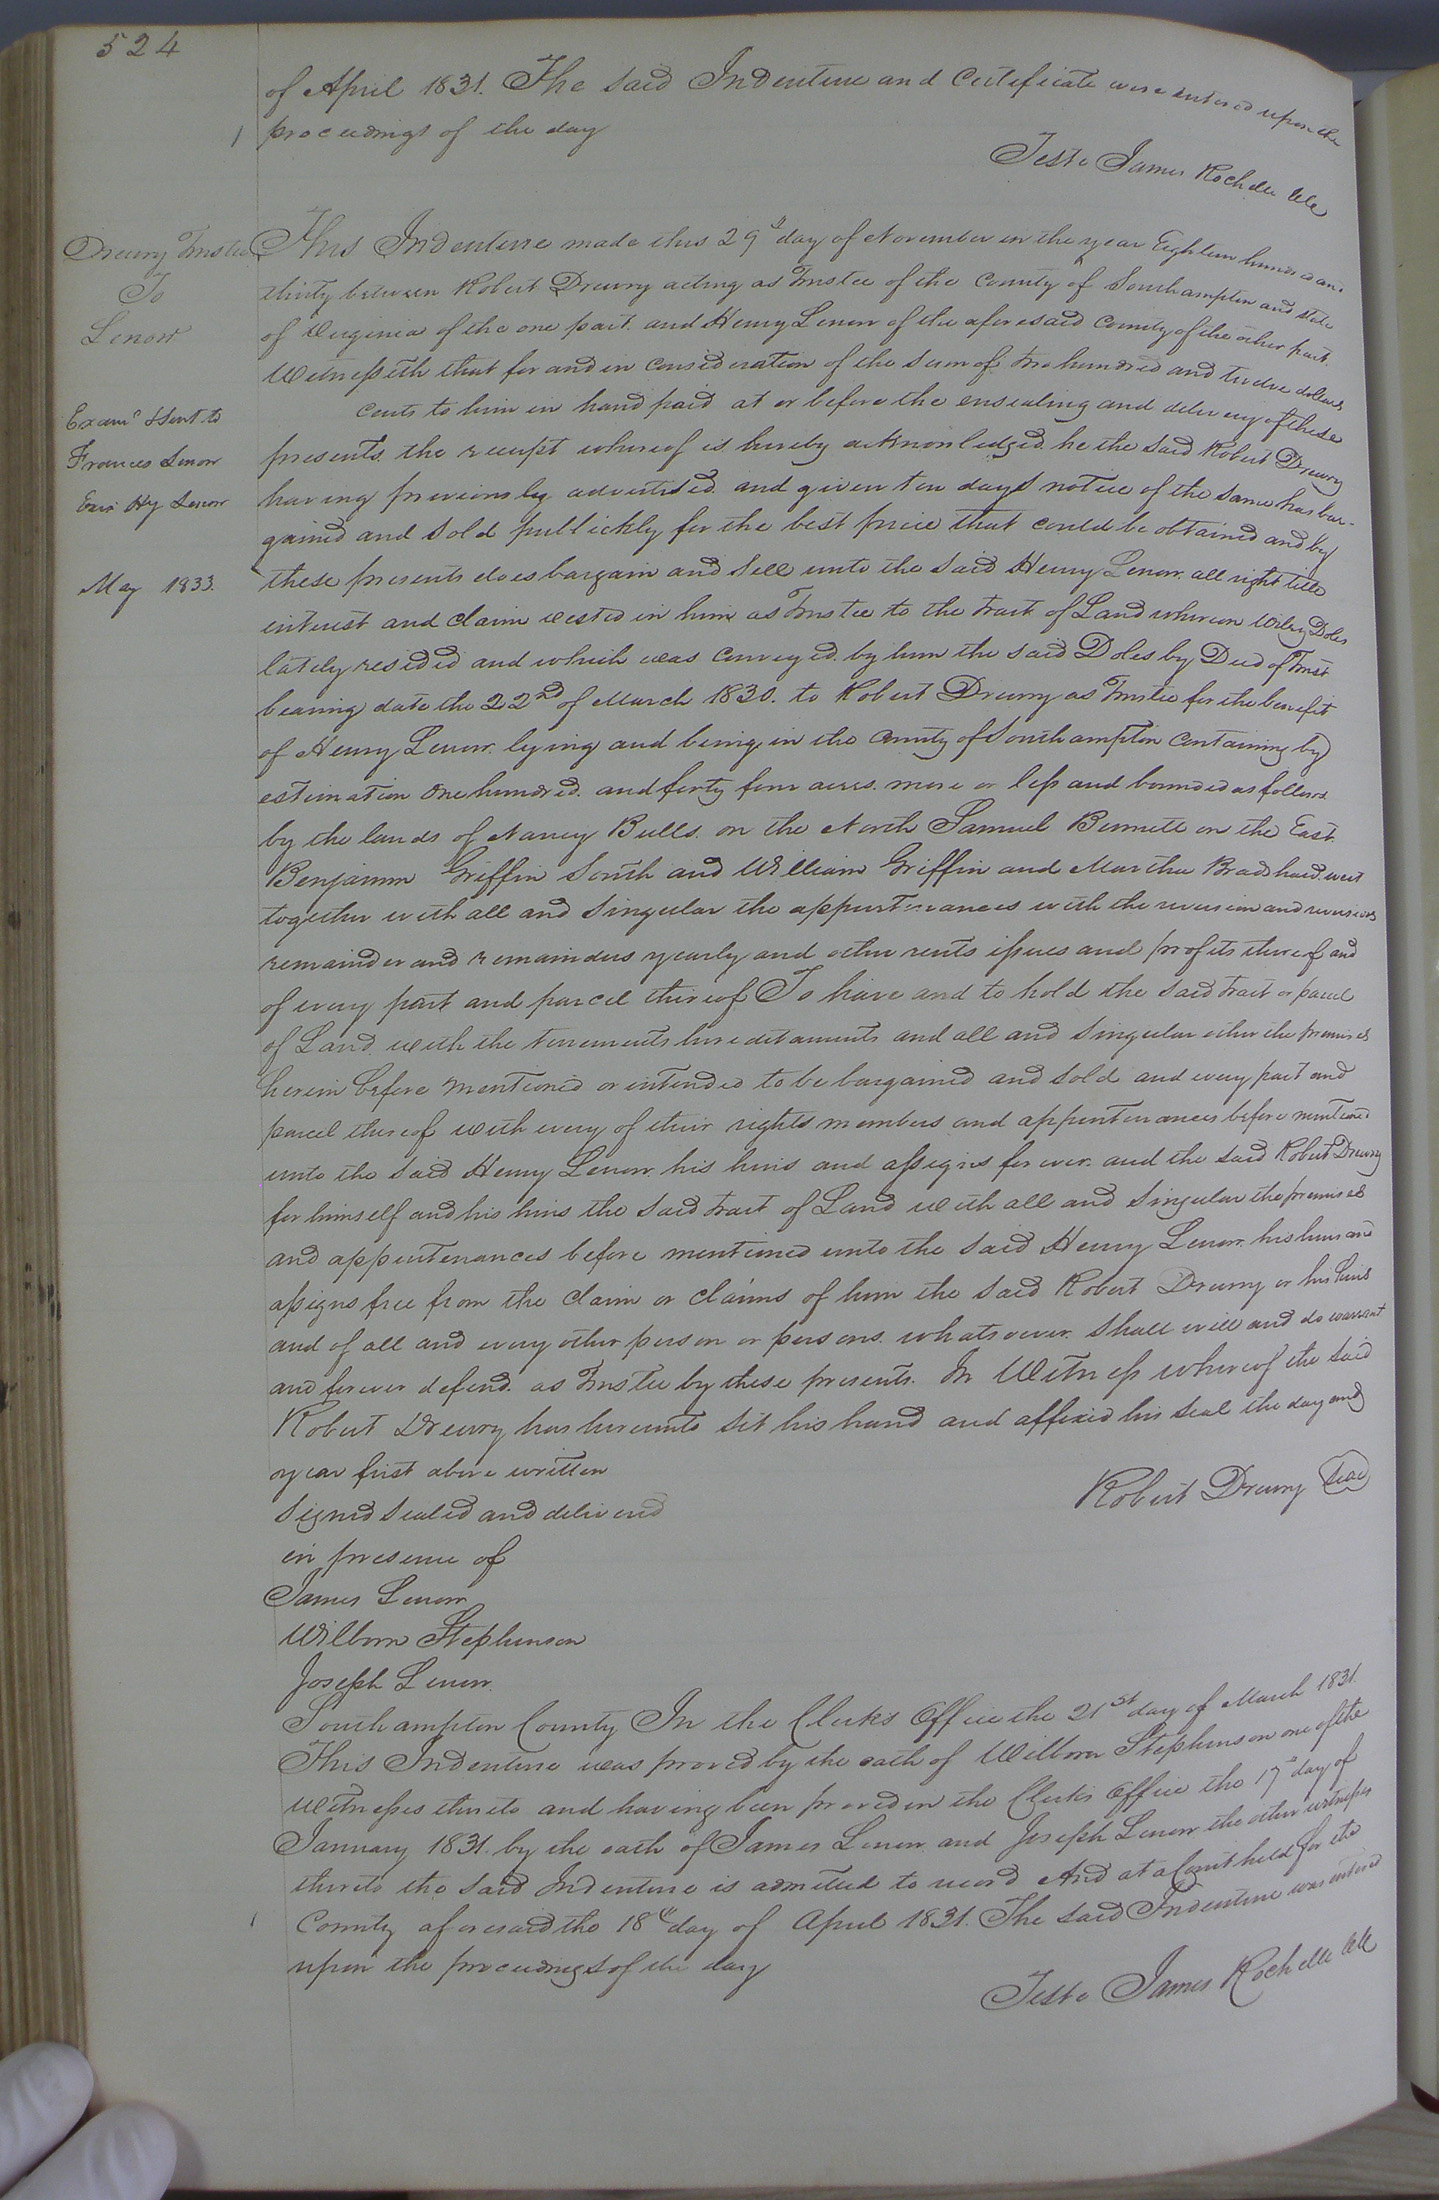 524
of April 1831. The said Indenture and Certificate were entered upon the
proceedings of the day
Teste James Rochelle Clk
Drewry Trustee
To
Lenow
Examd & sent to
Frances Lenow
Hy Lenow
May 1833.
This Indenture made this 29th day of November in the year Eighteen hundred and
thirty between Robert Drewry acting as Trustee of the County of Southampton and State
of Virginia of the one part. and Henry Lenow of the aforesaid County of the other part.
Witnesseth that for and in consideration of the sum of two hundred and twelve dollars
cents to him in hand paid at or before the ensealing and delivery of these
presents. the receipt whereof is hereby acknowledged. he the said Robert Drewry
having previously advertised and given ten days notice of the same has bar-
gained and sold publickly for the best price that could be obtained and by
these presents does bargain and sell unto the said Henry Lenow. all right title
interest and claim vested in him as Trustee to the tract of Land whereon Wiley Doles
lately resided and which was conveyed by him the said Doles by Deed of Trust
bearing date the 22nd of March 1830. to Robert Drewry as Trustee for the benefit
of Henry Lenow. lying and being in the County of Southampton containing by
estimation One hundred. and forty four acres. more or less and bounded as follows.
by the lands of Nancy Bulls. on the North Samuel Burnett on the East.
Benjamin Griffin South and William Griffin and Martha Bradshaw. west
together with all and singular the appurtenances with the reversion and reversions
remainder and remainders yearly and other rents issues and profits thereof and
of every part and parcel thereof To have and to hold the said tract or parcel
of Land with the tenements hereditaments and all and singular other the premises
herein before mentioned or intended to be bargained and sold and every part and
parcel thereof with every of their rights members and appurtenances before mentioned
unto the said Henry Lenow. his heirs and assigns for ever. and the said Robert Drewry
for himself and his heirs the said tract of Land with all and singular the premises
and appurtenances before mentioned unto the said Henry Lenow. his heirs and
assigns free from the claim or claims of him the said Robert Drewry or his heirs
and of all and every other person or persons. whatsoever. shall will and do warrant
and forever defend. as Trustee by these presents. In Witness whereof the said
Robert Drewry has hereunto set his hand and affixed his seal the day and
year first above written
Signed sealed and delivered
Robert Drewry Seal
in presence of
James Lenow
Wilborn Stephenson
Joseph Lenow.
Southampton County In the Clerks Office the 21st day of March 1831.
This Indenture was proved by the oath of Wilborn Stephenson one of the
witnesses thereto and having been proved in the Clerks Office the 17th day of
January 1831. by the oath of James Lenow and Joseph Lenow the other witnesses
thereto the said Indenture is admitted to record And at a Court held for the
County aforesaid the 18th day of April 1831. The said Indenture was entered
upon the proceedings of the day
Teste James Rochelle Clk